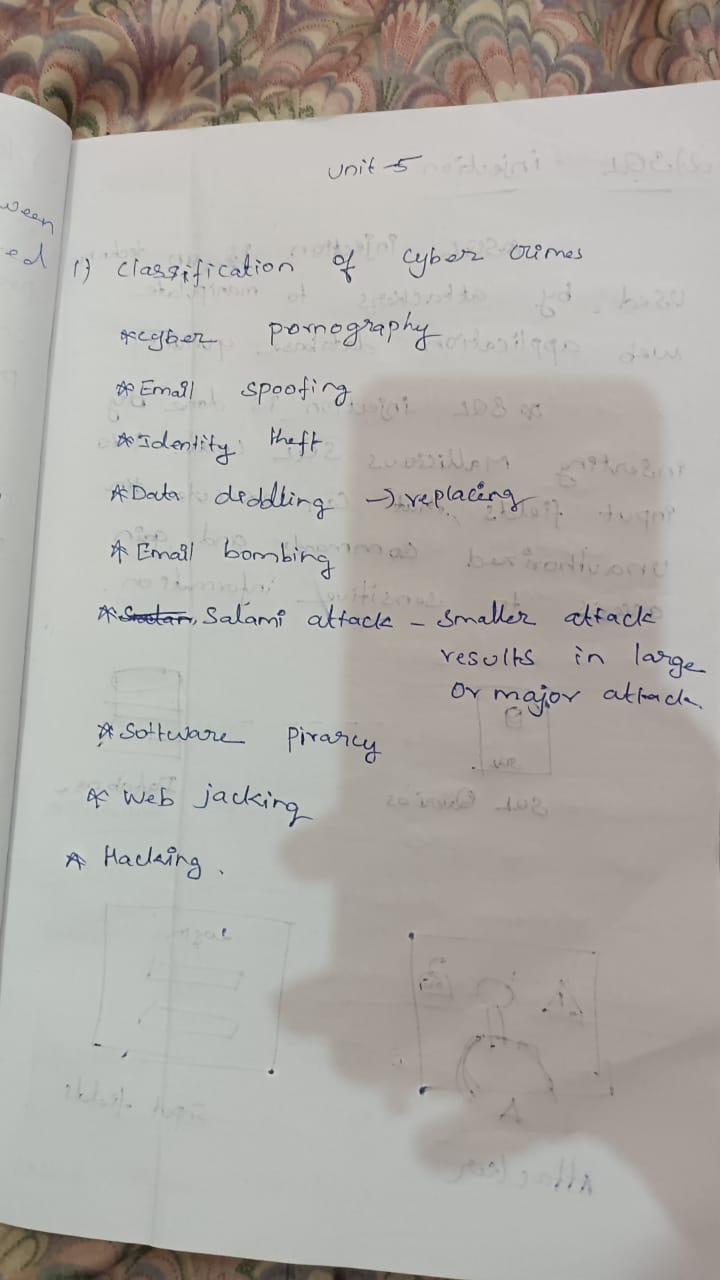 Unit 5
ween
ed
1) Classification of cyber crimes
* cyber pornography
* Email spoofing
* Identity theft
* Data diddling → replacing
* Email bombing
* Salami attack - smaller attack
results in large
or major attack.
* Software pirarcy
* Web jacking
* Hacking.